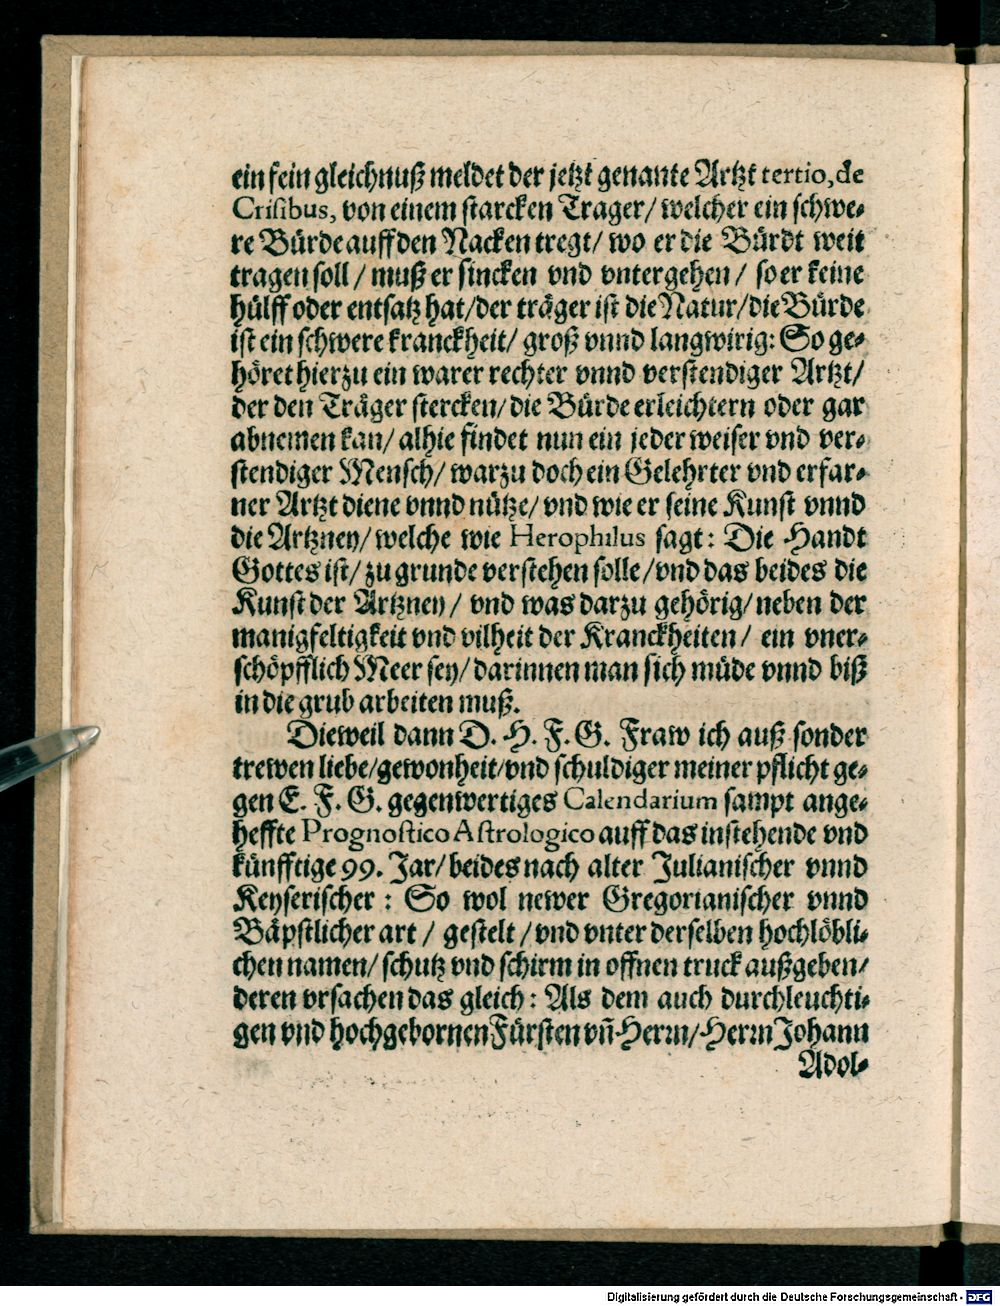 ein fein gleichnuß meldet der jetzt genante Artzt tertio, de
Crisibus, von einem starcken Trager/ welcher ein schwe-
re Bürde auff den Nacken tregt/ wo er die Bürdt weit
tragen soll / muß er sincken vnd vntergehen / so er keine
hülff oder entsatz hat/ der träger ist die Natur/ die Bürde
ist ein schwere kranckheit/ groß vnnd langwirig: So ge-
höret hierzu ein warer rechter vnnd verstendiger Artzt/
der den Träger stercken/ die Bürde erleichtern oder gar
abnemen kan/ alhie findet nun ein jeder weiser vnd ver-
stendiger Mensch/ warzu doch ein Gelehrter vnd erfar-
ner Artzt diene vnnd nütze/ vnd wie er seine Kunst vnnd
die Artzney/ welche wie Herophilus sagt: Die Handt
Gottes ist/ zu grunde verstehen solle/ vnd das beides die
Kunst der Artzney / vnd was darzu gehörig/ neben der
manigfeltigkeit vnd vilheit der Kranckheiten/ ein vner-
schöpfflich Meer sey/ darinnen man sich müde vnnd biß
in die grub arbeiten muß.
Dieweil dann D. H. F. G. Fraw ich auß sonder
trewen liebe/ gewonheit/ vnd schuldiger meiner pflicht ge-
gen E. F. G. gegenwertiges Calendarium sampt ange-
heffte Prognostico Astrologico auff das instehende vnd
künfftige 99. Jar/ beides nach alter Julianischer vnnd
Keyserischer : So wol newer Gregorianischer vnnd
Bäpstlicher art / gestelt / vnd vnter derselben hochlöbli-
chen namen/ schutz vnd schirm in offnen truck außgeben/
deren vrsachen das gleich : Als dem auch durchleuchti-
gen vnd hochgebornen Fürsten vñ Herrn/ Herrn Johann
Adol-
Digitalisierung gefördert durch die Deutsche Forschungsgemeinschaft - DFG